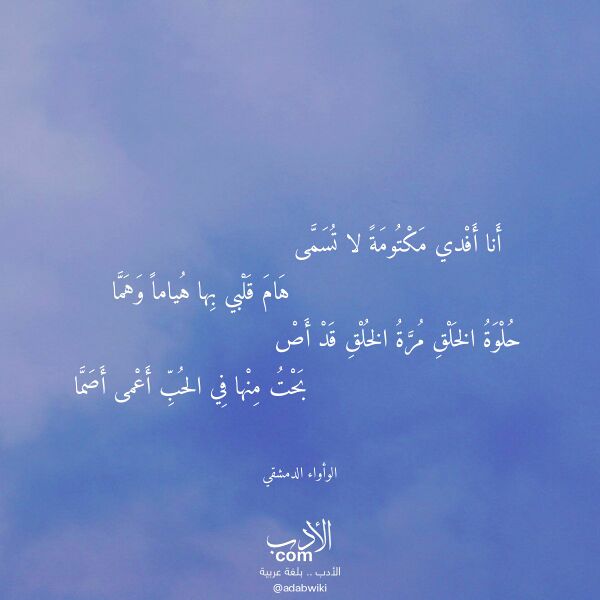 أَنا أَفْدي مَكْتُومَةً لا تُسَمَّى
هَامَ قَلْبي بِها هُياماً وَهَمَّا
حُلْوَةُ الخَلْقِ مُرَّةُ الخُلْقِ قَدْ أَصْ
بَحْتُ مِنْها فِي الحُبِّ أَعْمى أَصَمَّا
الوأواء الدمشقي
الأدب
com
الأدب .. بلغة عربية
@adabwiki